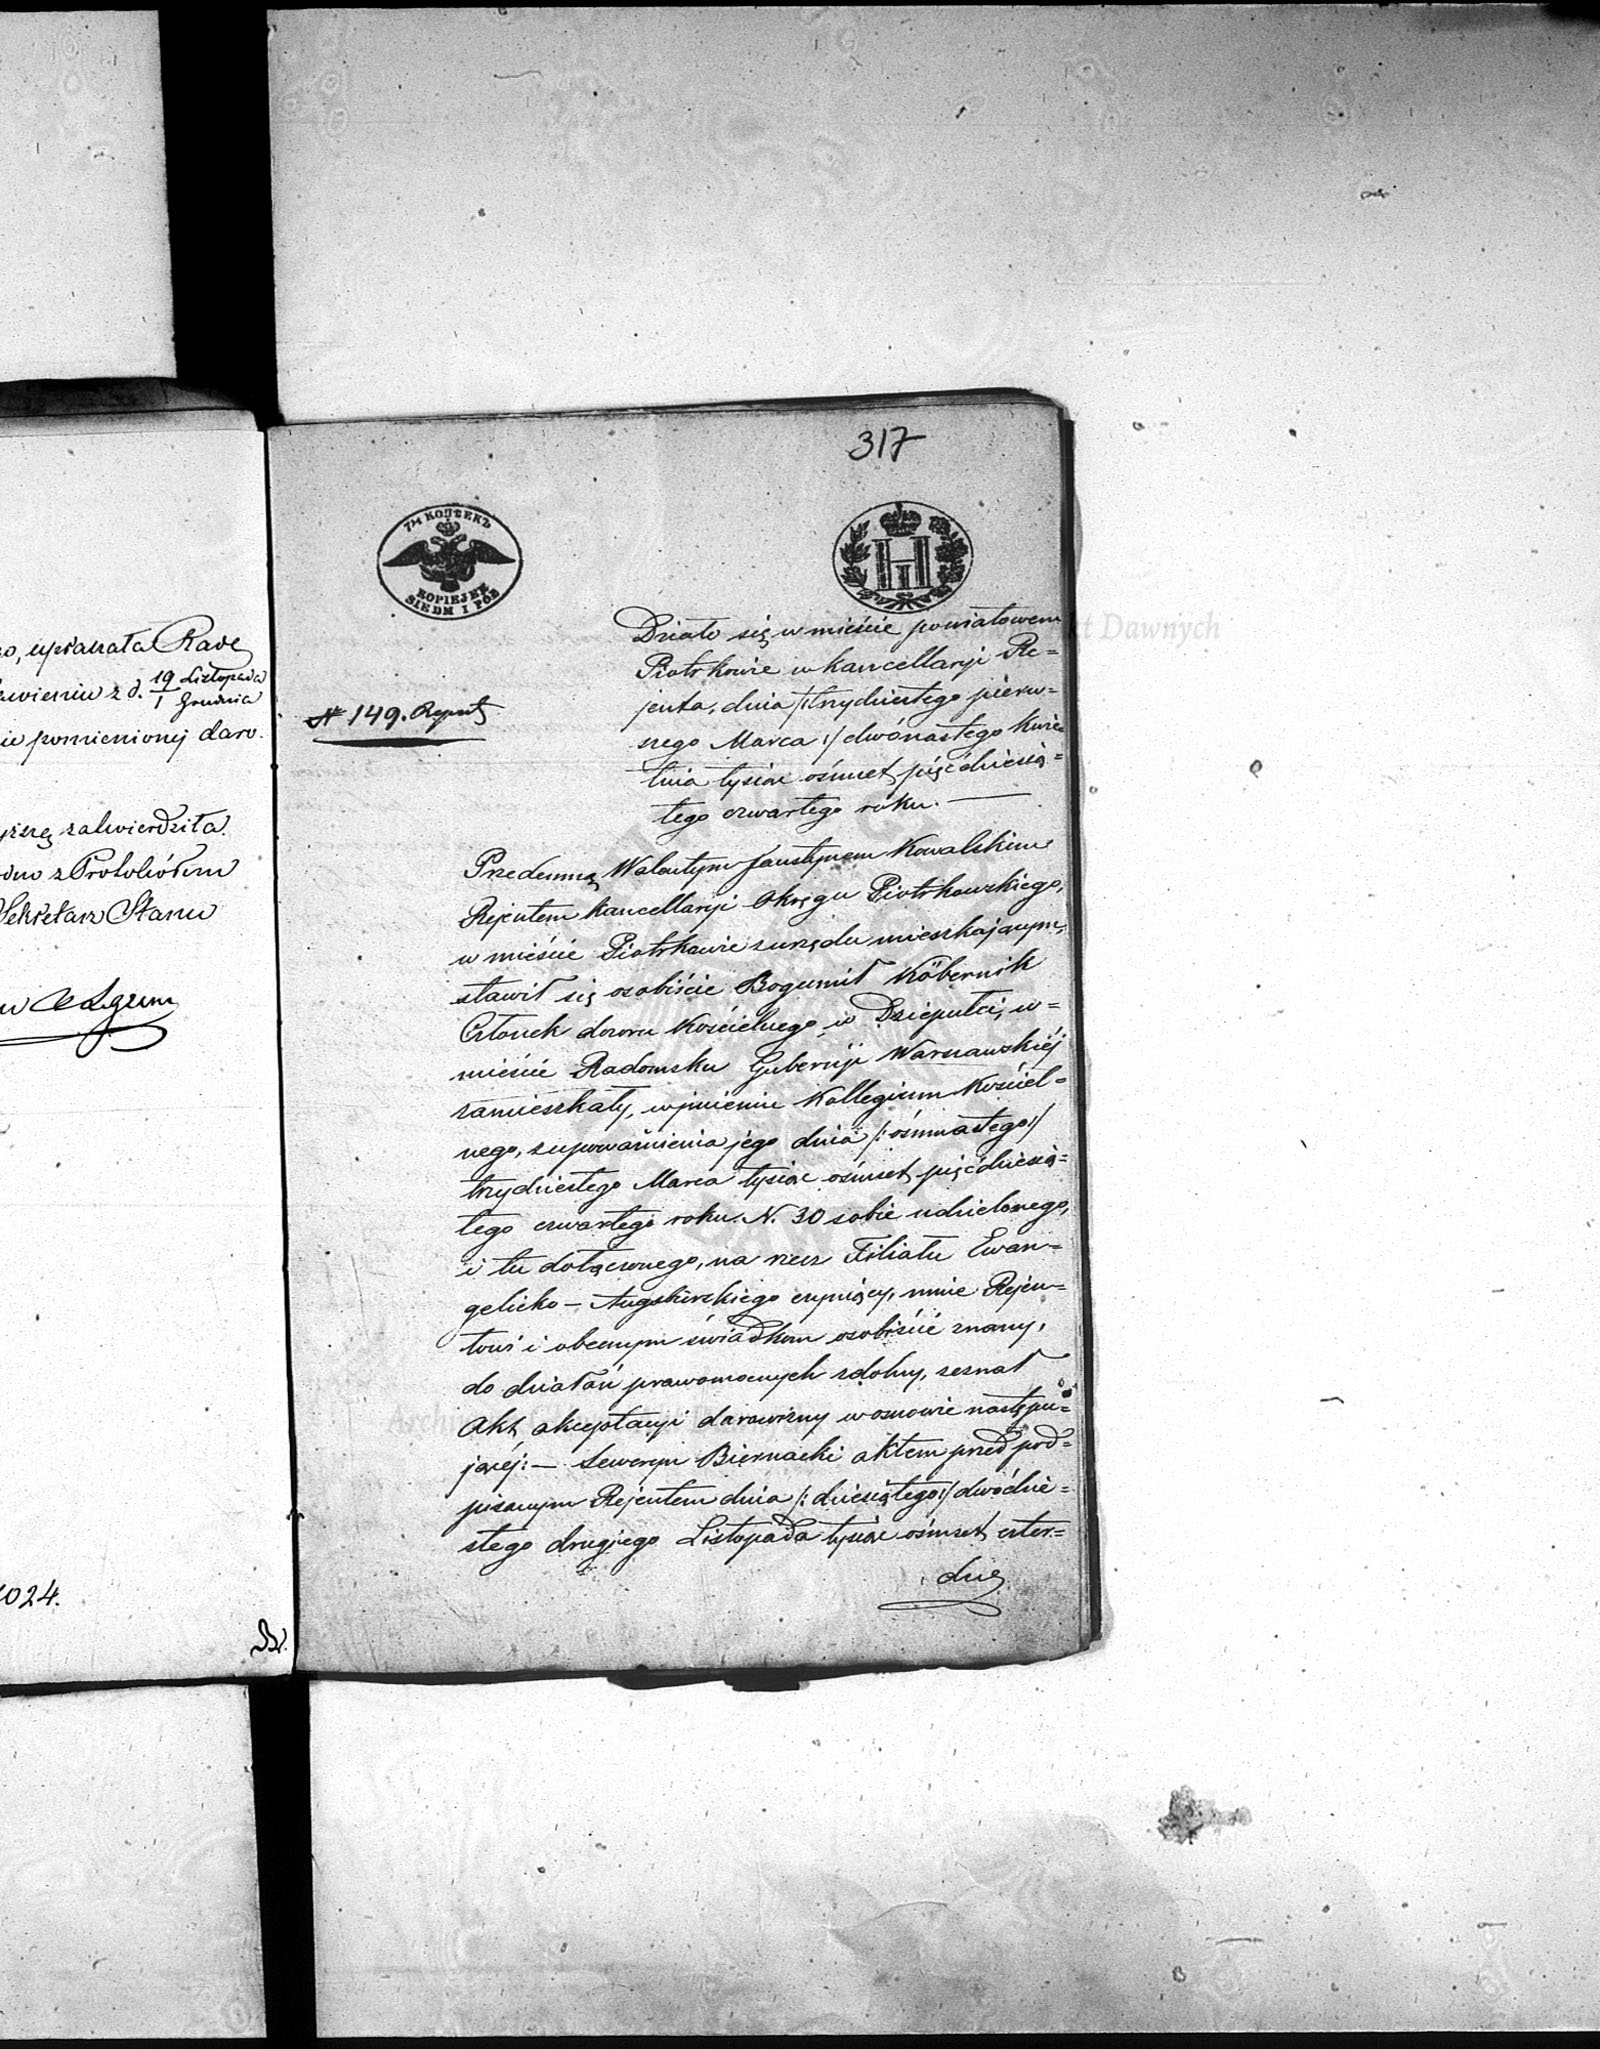 upraszała Radę
z d. 19/1 Listopada/Grudnia
pomienionej daro.
zatwierdziła.
z Protokółem
Sekretarz Stanu
1024.
317
7½ КОПѢЕКЪ
KOPIEJEK
SIEDM I PÓŁ
H
I
Działo się w mieście powiatowem
Piotrkowie w kancellaryi Re=
jenta, dnia /:trzydziestego pierw=
szego Marca :/ dwónastego Kwie
tnia tysiąc ośmset pięćdziesią=
tego czwartego roku. —
N 149. Repert.
Przedemną Walentym Faustynem Kowalskim
Rejentem kancellaryi Okręgu Piotrkowskiego,
w mieście Piotrkowie z urzędu mieszkającym,
stawił się osobiście Bogumił Köbernik
Członek dozoru Kościelnego w Dziepułci, w=
mieście Radomsku Gubernji Warszawskiéj
zamieszkały, w imieniu Kollegium Kościel=
nego, z upoważnienia jego dnia /: ośmnastego :/
trzydziestego Marca tysiąc ośmset pięćdziesią=
tego czwartego roku. N. 30 sobie udzielonego,
i tu dołączonego, na rzecz Filiału Ewan=
gelicko – Augsburskiego czyniący, mnie Rejen=
towi i obecnym świadkom osobiście znany,
do działań prawomocnych zdolny, zeznał
Akt akceptacyi darowizny w osnowie następu=
jącéj: — Seweryn Biernacki aktem przed pod=
pisanym Rejentem dnia /: dziesiątego :/ dwódzie=
stego drugiego Listopada tysiąc ośmset czter=